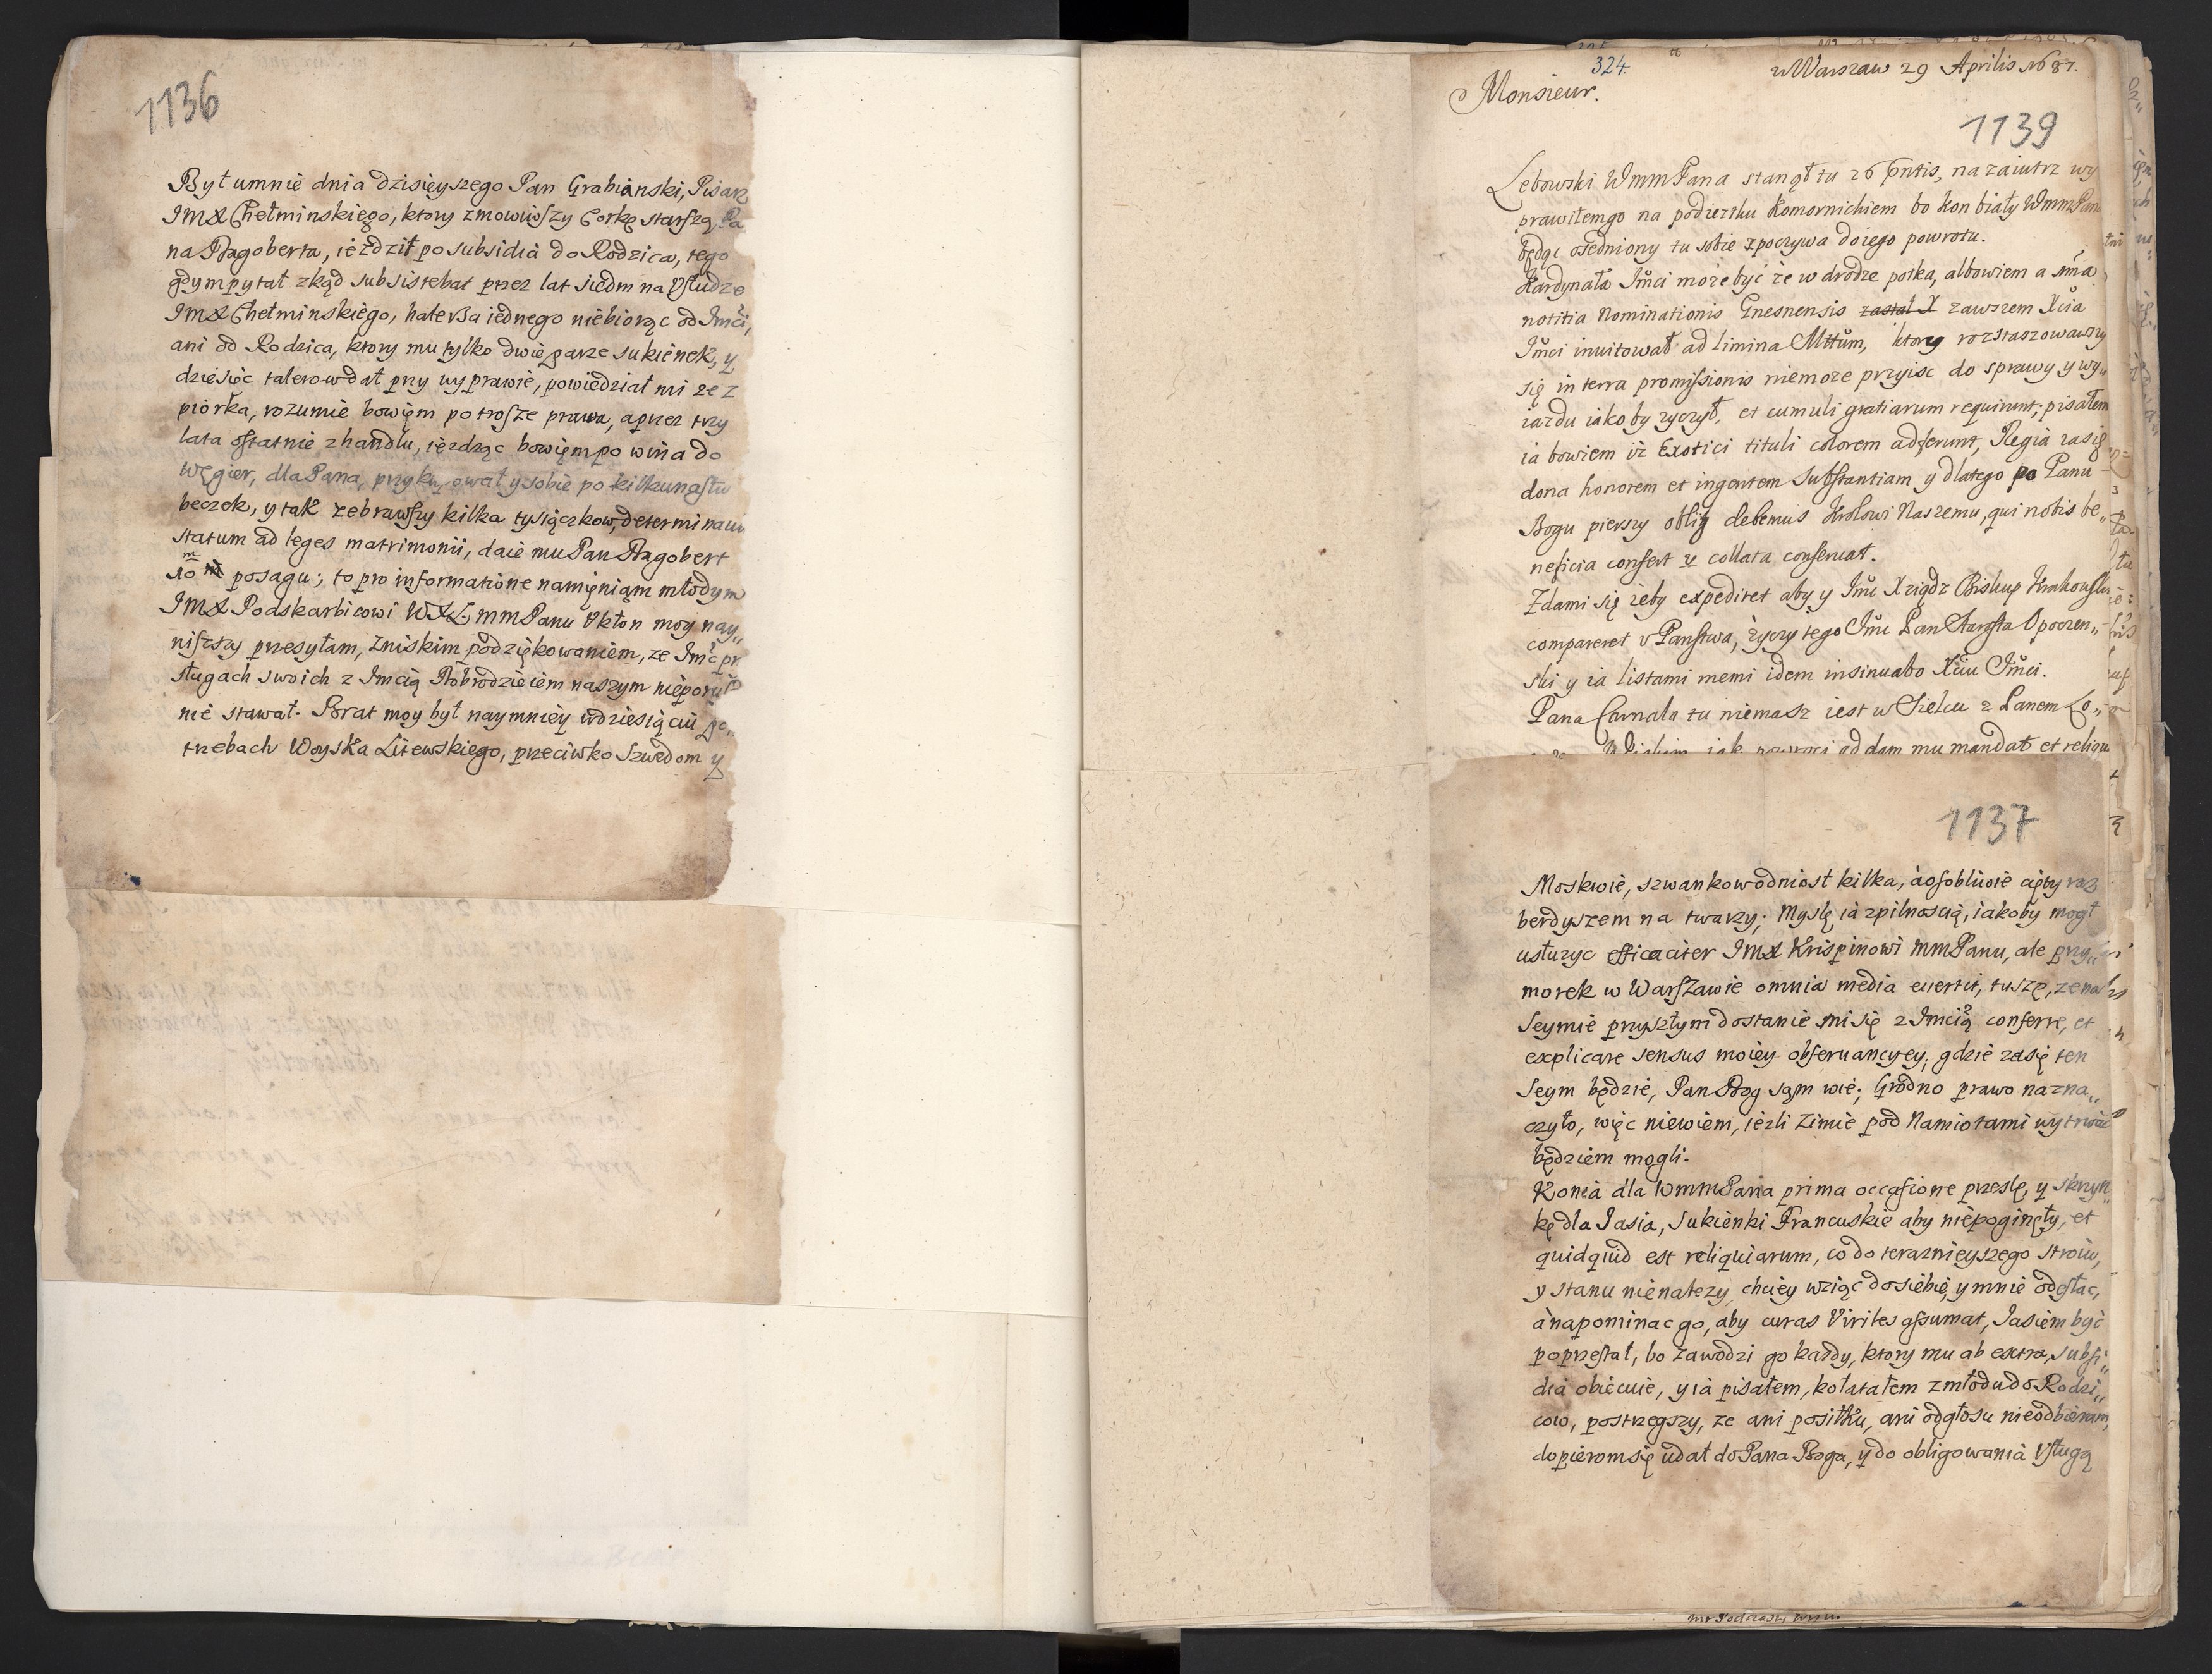 1136
Był umnie dnia dzisieyszego Pan Grabianski, Pisarz
IMX Chełminskiego, ktory zmowiwszy Corkę starszą, Pa
na Dagoberta, ieździł po subsidia do Rodzica, tego
gdym pytał zkąd subsistebat przez lat siedm na Vsłudze
IMX Chełminskiego, halerza iednego niebiorąc od Imci,
ani od Rodzica, ktory mu tylko dwie parze sukienek, y
dziesięc talerow dał przy wyprawie, powiedział mi ze z
piorka, rozumie bowięm potrosze prawa, a przez trzy
lata ostatnie z handlu, ieżdząc bowięm po wina do
Węgier, dla Pana, przykupował y sobie po kilkunastu
beczek, y tak zebrawszy kilka tysiączkow, determinauit
statum ad leges matrimonii, daie mu Pan Dagobert
10 m posagu; to pro informatione namięniąm młodym
IMX Podskarbicowi WXL: mmPanu Vkłon moy nay„
niszszy przesyłam, z niskim podziękowaniem, ze Imc pr
sługach swoich z Imcią Dobrodzieiem naszym
nie stawał. Brat moy był naymniey wdziesiąciu po„
trzebach Woyska Litewskiego, przeciwko Szwedom y
324.
w Warszaw 29 Aprilis 1687.
Monsieur.
1139
Lebowski WmmPana stanął tu 26 pntis, nazaiutrz wy
prawiłemgo na podiezdku Komornickiem bo kon biały WmmPana
będąc osedniony tu sobie zpoczywa do iego powrotu.
Kardynała Imci może być że w drodze potka, albowiem a
notitia Nominationis Gnesnensis zastał X zawszem Xcia
Imci inuitował ad limina ktory rozstaszowawszy
się in terra promissionis niemoze przyisc do sprawy y wy„
iazdu iakoby zyczył, et cumuli gratiarum requirunt; pisałem
ia bowiem iż Exotici tituli colorem adferunt, Regia zasię
dona honorem et ingentem Substantiam y dlatego po Panu
Bogu pierszy oblig debemus Krolowi Naszemu, qui nobis be„
neficia confert et collata conseruat.
Zdami się żeby expediret aby y Imc Xiądz Biskup Krakowski
compareret v Panstwa, życzy tego Imc Pan Starosta Opoczen„
ski y ia listami memi idem insinuabo Xciu Imci.
Pana Carnala tu niemasz iest w Kielcu z Panem Lo„
iak powroci oddam mu mandat et reliqu
1137
Moskwie, szwankow odniosł kilka, a osobliwie cięty raz
berdyszem na twarzy; Myslę ia zpilnoscią, iakoby mogł
usłuzyc efficaciter IMX Krispinowi mmPanu, ale przy„
morek w Warszawie omnia media euertit, tuszę, ze na
Seymie przyszłym dostanie mi się z Imcią conferre, et
explicare sensus moiey obseruancyey; gdzie zasię ten
Seym będzie, Pan Bog sąm wie; Grodno prawo nazna„
czyło, więc niewiem, iezli Zimie pod Namiotami wytrwać
będziem mogli.
Konia dla WmmPana prima occasione przeslę, y skrzyn„
kę dla Jasia, Sukienki Francuskie aby niepoginęły, et
quidquid est reliquiarum, co do teraznieyszego stroiu,
y stanu nienalezy, chciey wziąc do siebie, y mnie odesłac,
a napominac go, aby curas Viriles assumat, Jasiem być
poprzestał, bo zawodzi go kazdy, ktory mu ab extra, subsi„
dia obiecuie, y ia pisałem, kołatałem zmłodu do Rodzi„
cow, postrzegszy, ze ani posiłku, ani odgłosu nieodbieram,
dopieromsię udał do Pana Boga, y do obligowania Vsługą